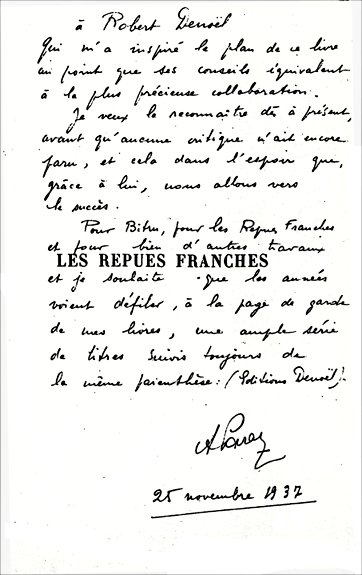 à Robert Denoël
Qui m'a inspiré le plan de ce livre
au point que ses conseils équivalent
à la plus précieuse collaboration.
Je veux le reconnaître dès à présent,
avant qu'aucune critique n'ait encore
paru, et cela dans l'espoir que,
grâce à lui, nous allons vers
le succès.
Pour Bitru, pour les Repues Franches
et pour bien d'autres travaux
LES REPUES FRANCHES
et je souhaite que les années
voient défiler, à la page de garde
de mes livres, une ample série
de titres suivis toujours de
la même parenthèse : (Editions Denoël).
25 novembre 1937